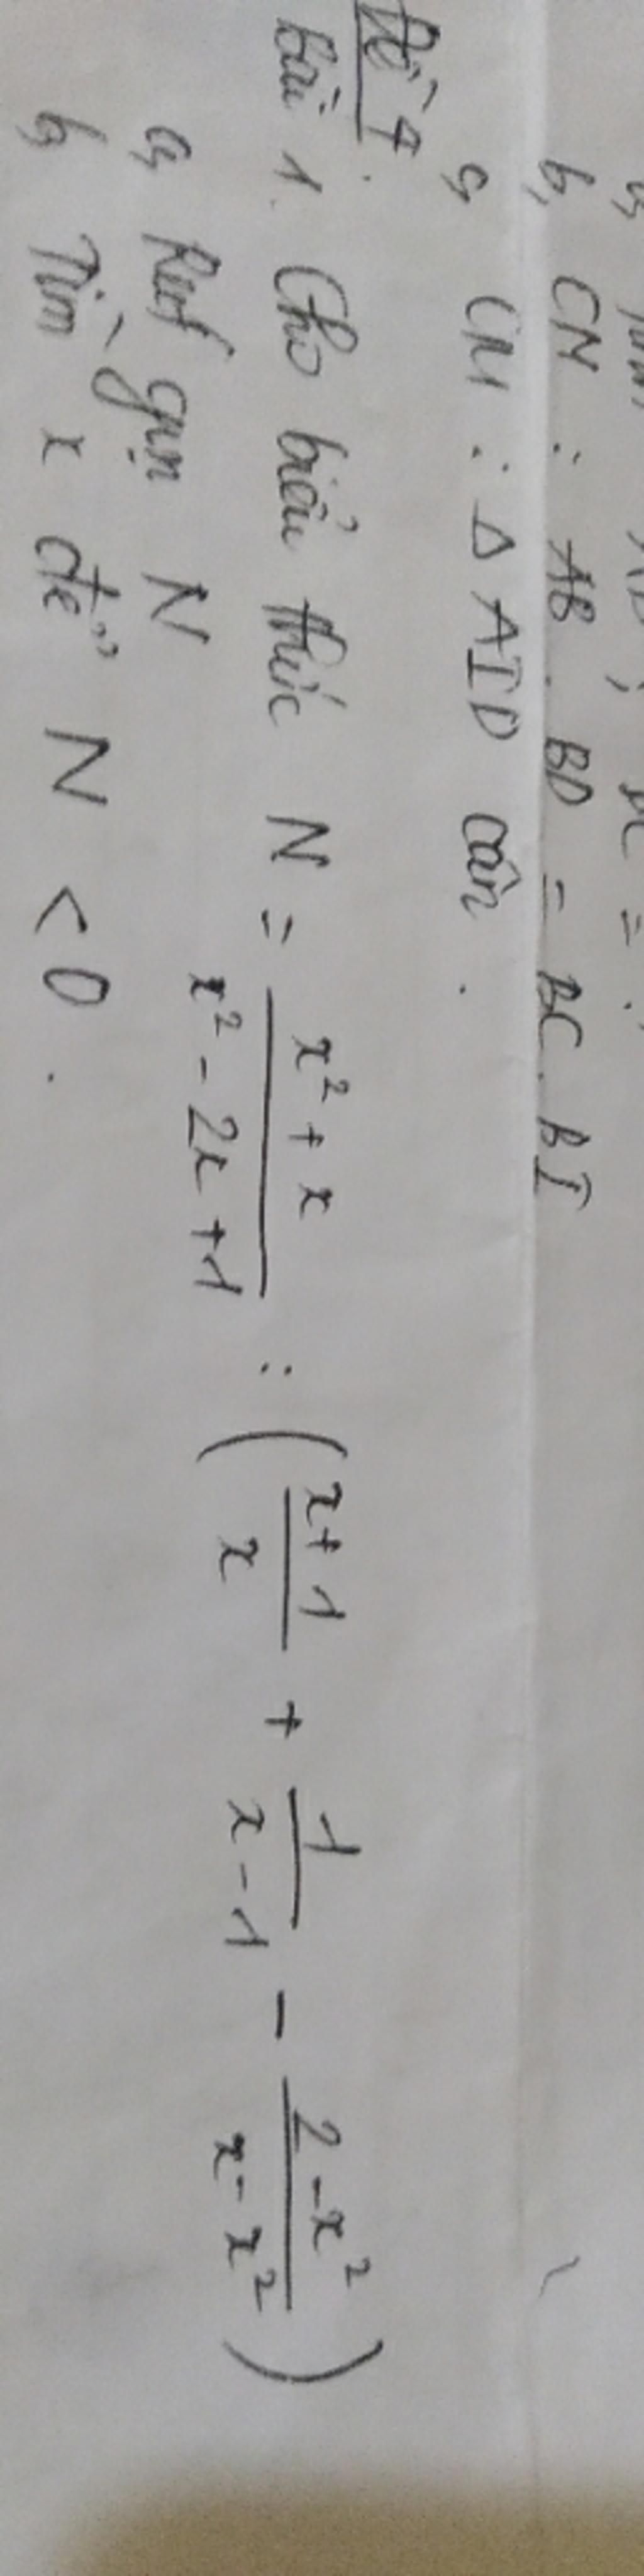 b, CM : AB . BD = BC . BI
c, CM : Δ AID cân .
Đề 4.
bài 1. Cho biểu thức N = \frac{x^2 + x}{x^2 - 2x + 1} : ( \frac{x+1}{x} + \frac{1}{x-1} - \frac{2-x^2}{x-x^2} )
a, Rút gọn N
b, Tìm x để N < 0 .